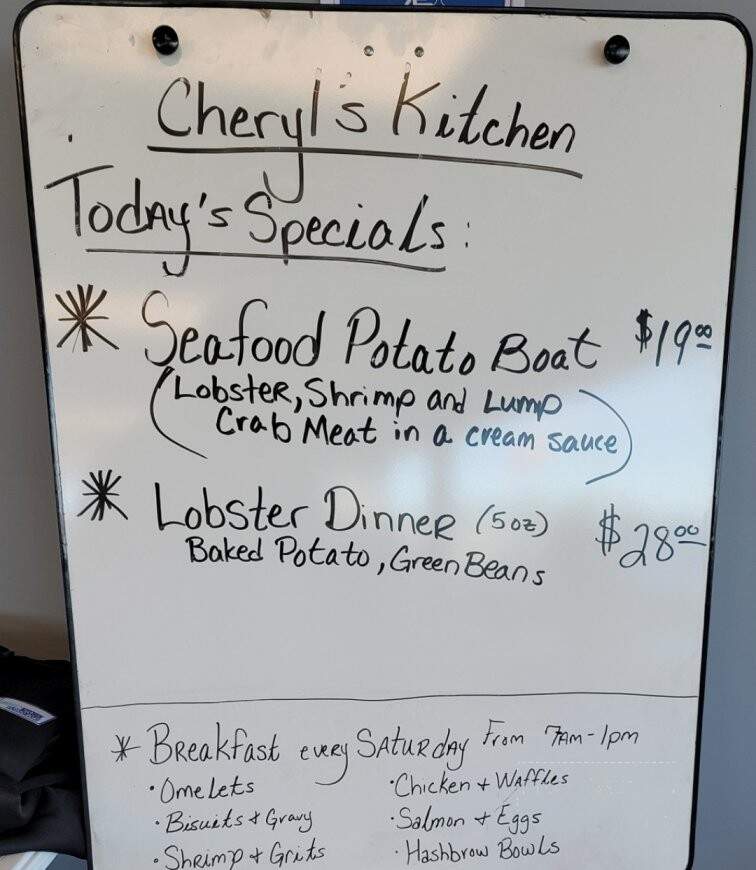 Cheryl's Kitchen
Today's Specials:
* Seafood Potato Boat $19.00
(Lobster, Shrimp and Lump
Crab Meat in a cream sauce)
* Lobster Dinner (5oz) $28.00
Baked Potato, Green Beans
* Breakfast every Saturday From 7am-1pm
· Omelets · Chicken + Waffles
· Biscuits + Gravy · Salmon + Eggs
· Shrimp + Grits · Hashbrow Bowls